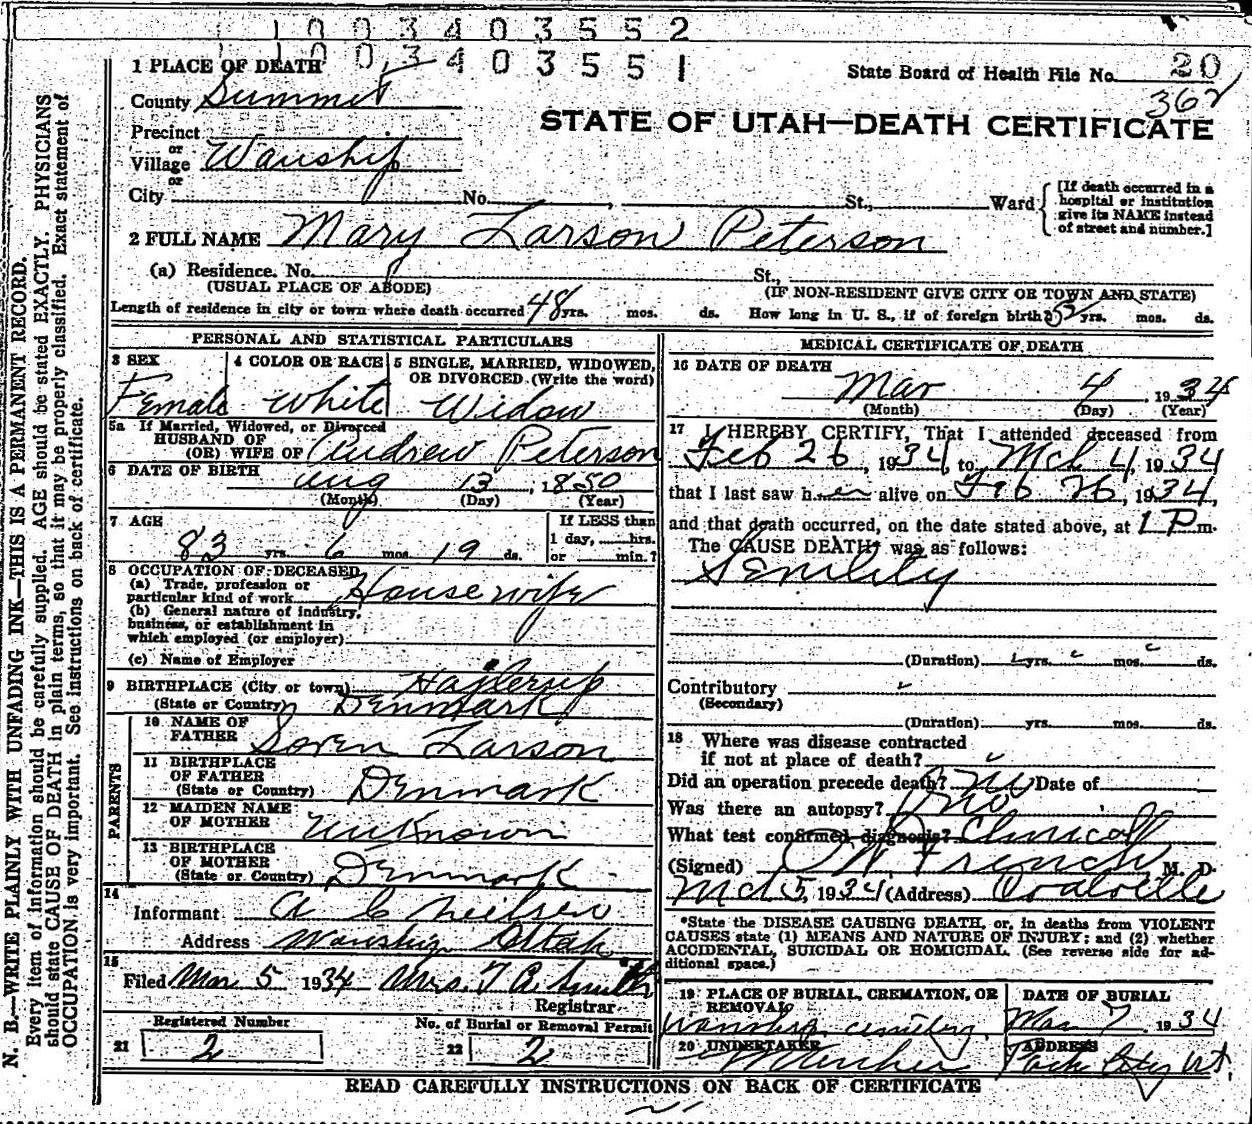 1 0 0 3 4 0 3 5 5 2
1 0 0 3 4 0 3 5 5 1
1 PLACE OF DEATH
State Board of Health File No. 20
County Summit
362
STATE OF UTAH—DEATH CERTIFICATE
Precinct
or
Village Wanship
or
City No. , St., Ward
[If death occurred in a
hospital or institution
give its NAME instead
of street and number.]
2 FULL NAME Mary Larson Peterson
(a) Residence. No. St.,
(USUAL PLACE OF ABODE) (IF NON-RESIDENT GIVE CITY OR TOWN AND STATE)
Length of residence in city or town where death occurred 48 yrs. mos. ds. How long in U. S., if of foreign birth? 52 yrs. mos. ds.
PERSONAL AND STATISTICAL PARTICULARS
3 SEX 4 COLOR OR RACE 5 SINGLE, MARRIED, WIDOWED,
OR DIVORCED (Write the word)
Female White Widow
5a If Married, Widowed, or Divorced
HUSBAND OF
(OR) WIFE OF Andrew Peterson
6 DATE OF BIRTH Aug 13, 1850
(Month) (Day) (Year)
7 AGE If LESS than
1 day, hrs.
83 yrs. 6 mos. 19 ds. or min.?
8 OCCUPATION OF DECEASED
(a) Trade, profession or
particular kind of work Housewife
(b) General nature of industry,
business, or establishment in
which employed (or employer)
(c) Name of Employer
9 BIRTHPLACE (City or town) Hojlerup
(State or Country) Denmark
PARENTS
10 NAME OF
FATHER Soren Larson
11 BIRTHPLACE
OF FATHER
(State or Country) Denmark
12 MAIDEN NAME
OF MOTHER Unknown
13 BIRTHPLACE
OF MOTHER
(State or Country) Denmark
14
Informant A C Neilsen
Address Wanship Utah
15
Filed Mar 5 1934 Mrs. T A Smith
Registrar
Registered Number No. of Burial or Removal Permit
21 2 22 2
MEDICAL CERTIFICATE OF DEATH
16 DATE OF DEATH
Mar 4, 1934
(Month) (Day) (Year)
17 I HEREBY CERTIFY, That I attended deceased from
Feb 26, 1934, to Mch 4, 1934
that I last saw her alive on Feb 26, 1934,
and that death occurred, on the date stated above, at 1 P m.
The CAUSE DEATH* was as follows:
Senility
(Duration) yrs. mos. ds.
Contributory
(Secondary)
(Duration) yrs. mos. ds.
18 Where was disease contracted
if not at place of death?
Did an operation precede death? no Date of
Was there an autopsy? no
What test confirmed diagnosis? Clinical
(Signed) French M. D.
Mch 5, 1934 (Address) Coalville
*State the DISEASE CAUSING DEATH, or, in deaths from VIOLENT
CAUSES state (1) MEANS AND NATURE OF INJURY; and (2) whether
ACCIDENTAL, SUICIDAL OR HOMICIDAL. (See reverse side for ad-
ditional space.)
19 PLACE OF BURIAL, CREMATION, OR
REMOVAL DATE OF BURIAL
Wanship cemetery Mar 7, 1934
20 UNDERTAKER ADDRESS
Park City Ut.
READ CAREFULLY INSTRUCTIONS ON BACK OF CERTIFICATE
N. B.—WRITE PLAINLY WITH UNFADING INK—THIS IS A PERMANENT RECORD.
Every item of information should be carefully supplied. AGE should be stated EXACTLY. PHYSICIANS
should state CAUSE OF DEATH in plain terms, so that it may be properly classified. Exact statement of
OCCUPATION is very important. See instructions on back of certificate.